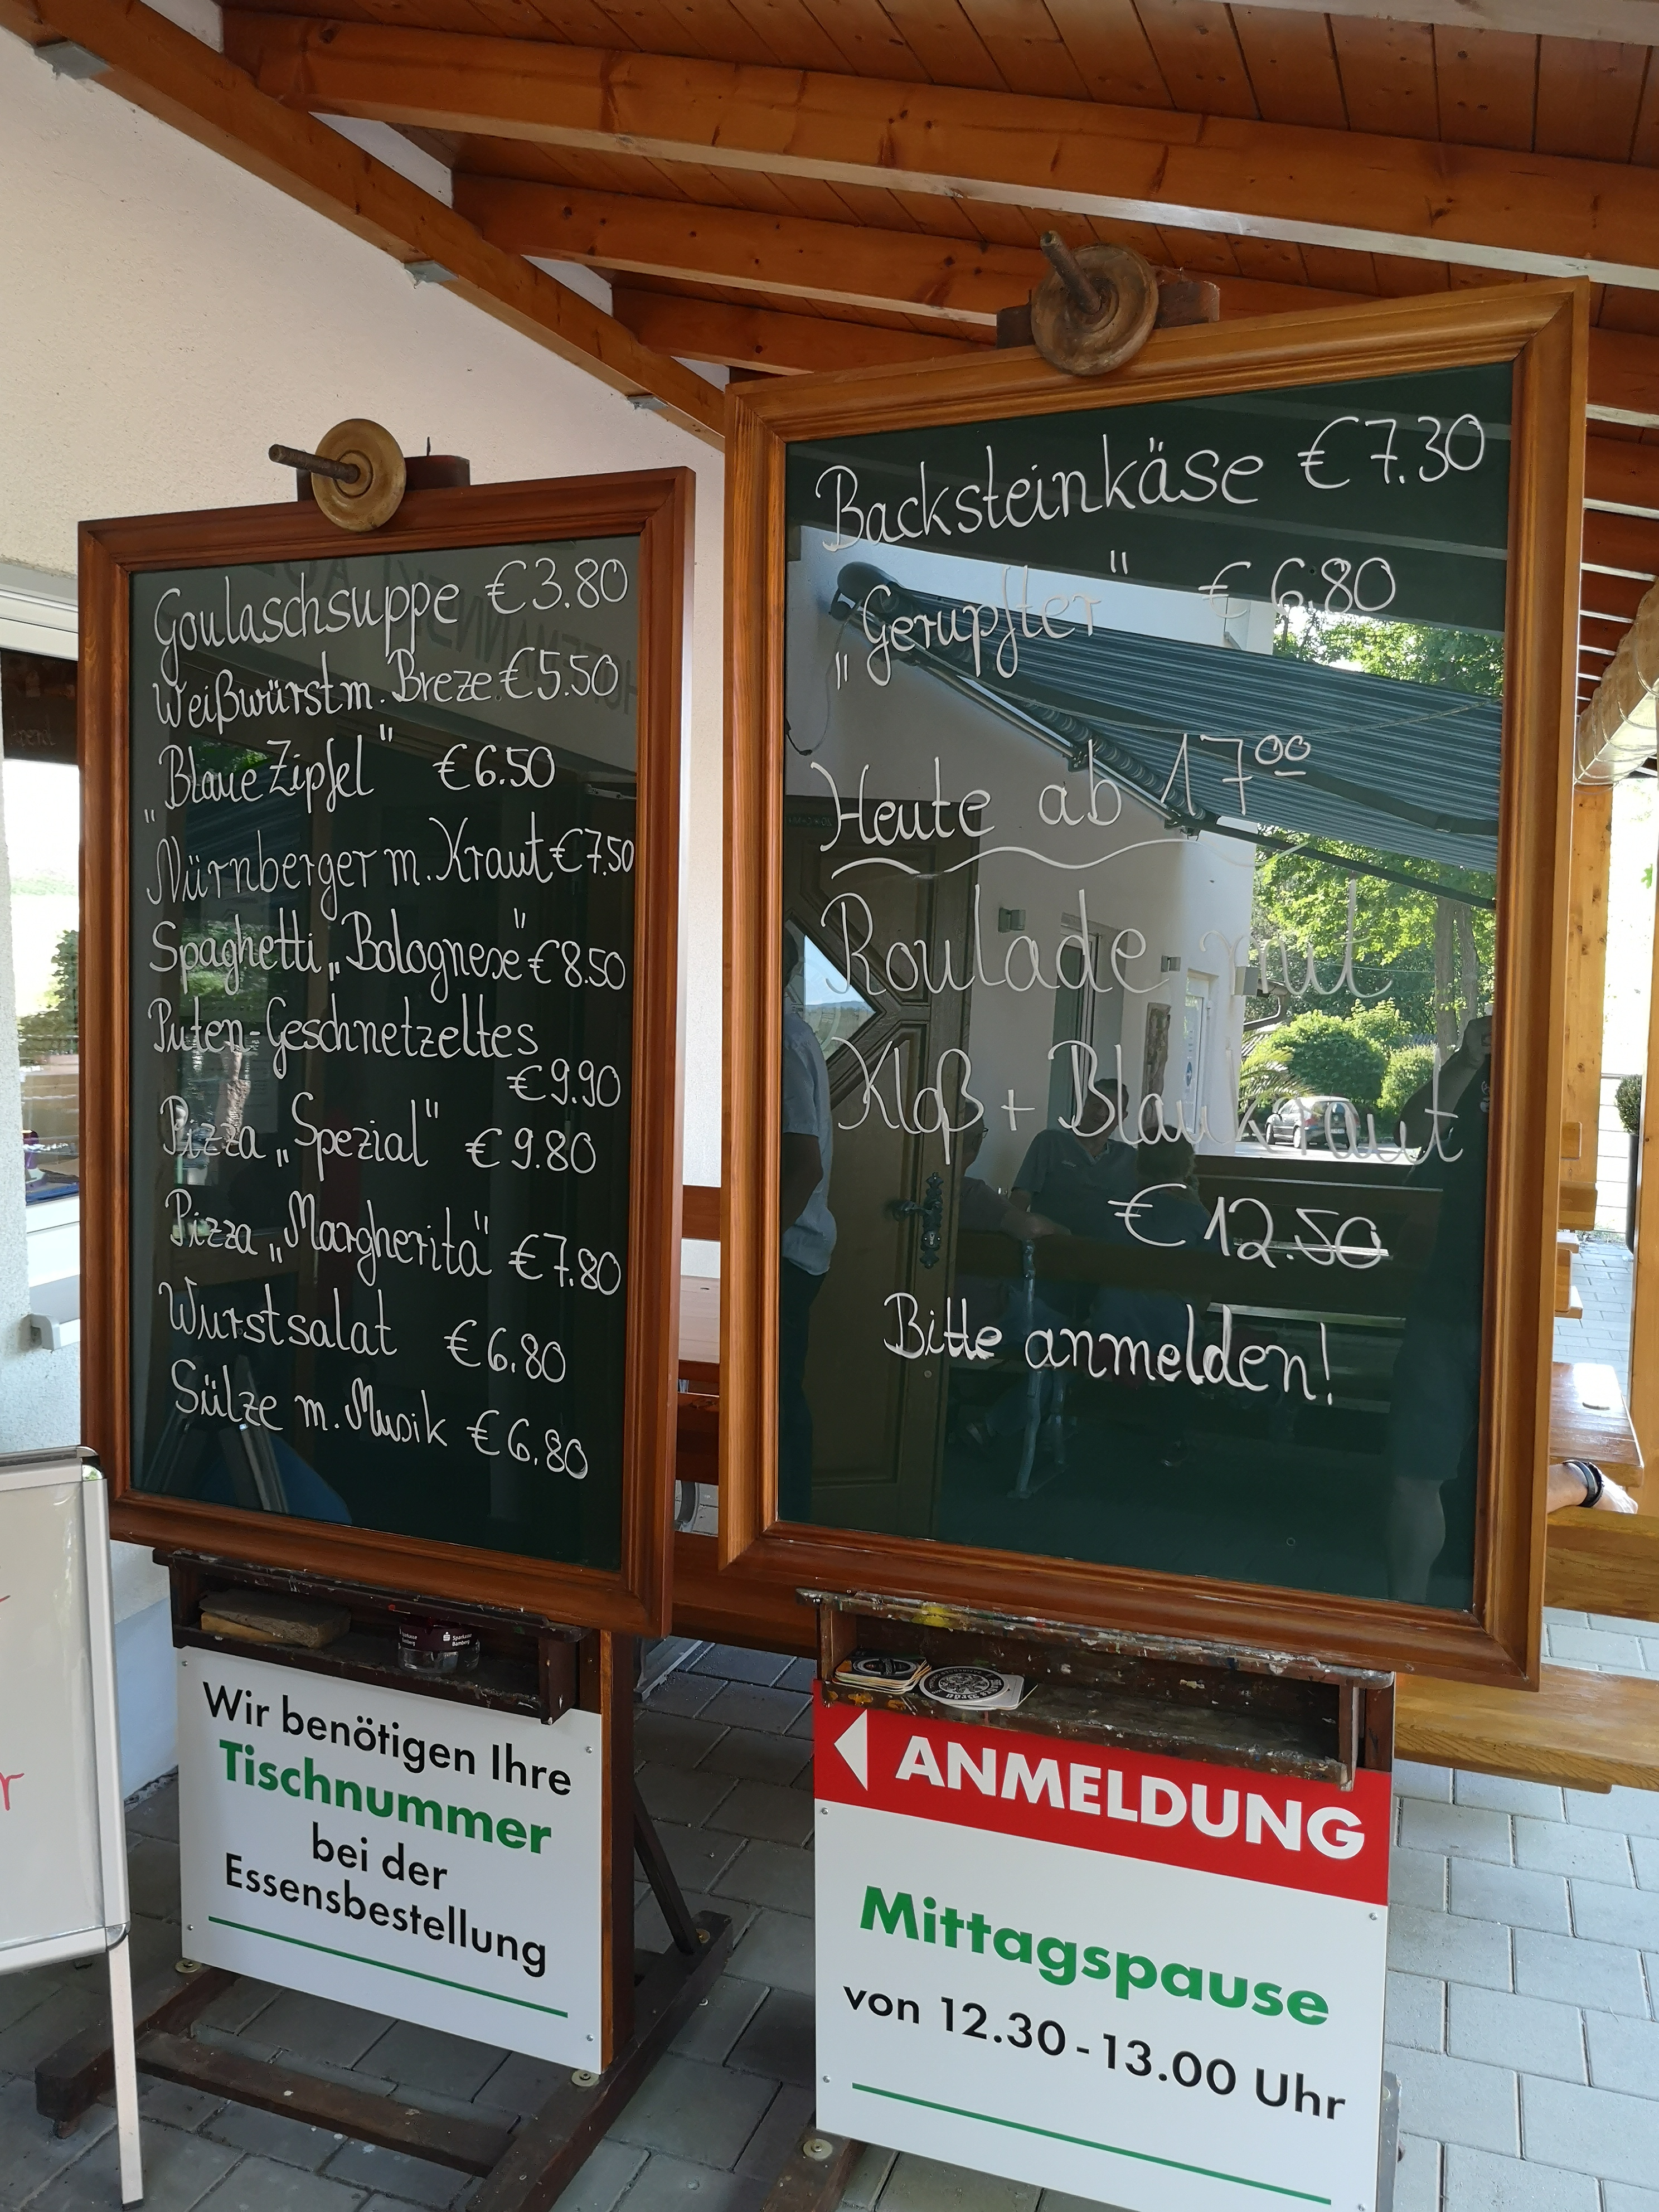 Goulaschsuppe €3.80
Weißwürst m. Breze €5.50
„Blaue Zipfel" €6.50
Nürnberger m. Kraut €7.50
Spaghetti „Bolognese" €8.50
Puten-Geschnetzeltes
€9.90
Pizza „Spezial" €9.80
Pizza „Margherita" €7.80
Wurstsalat €6.80
Sülze m. Musik €6.80
Wir benötigen Ihre
Tischnummer
bei der
Essensbestellung
Backsteinkäse €7.30
„Gerupfter" €6.80
Heute ab 17⁰⁰
Roulade mit
Kloß + Blaukraut
€12.50
Bitte anmelden!
ANMELDUNG
Mittagspause
von 12.30 - 13.00 Uhr
Sparkasse
Bamberg